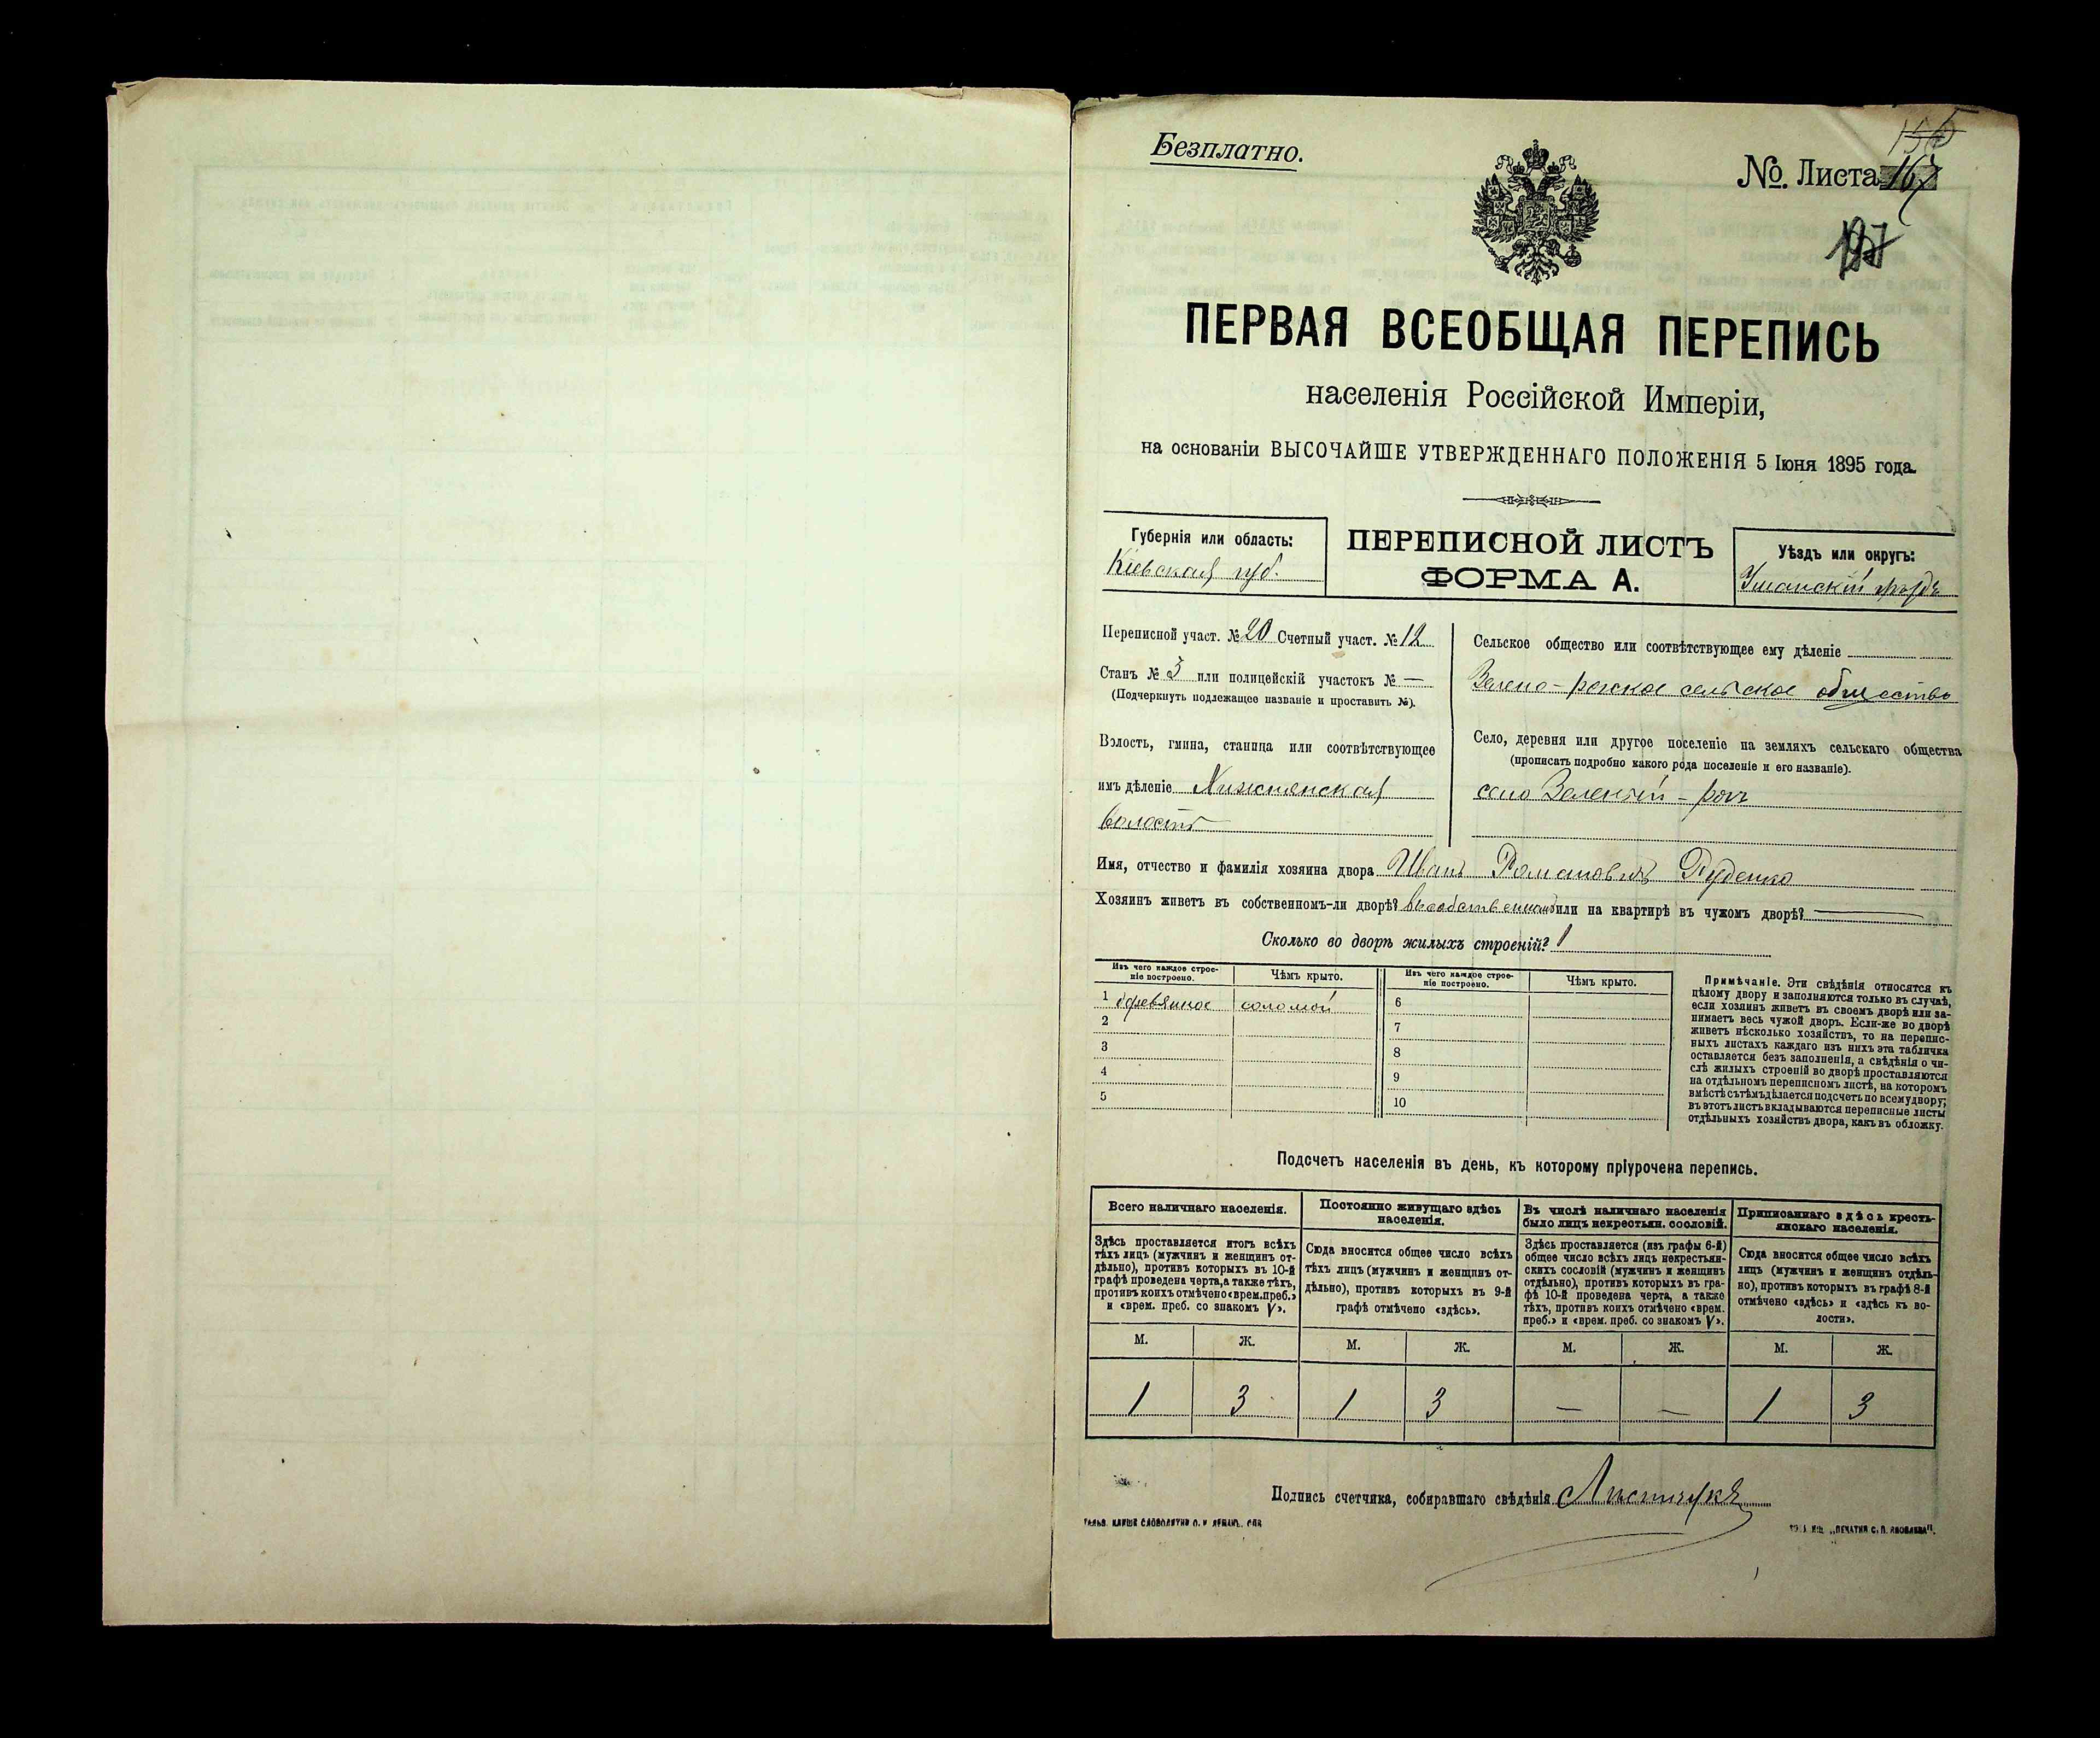 Безплатно.
№. Листа 167
ПЕРВАЯ ВСЕОБЩАЯ ПЕРЕПИСЬ
населенія Россійской Имперіи,
на основаніи ВЫСОЧАЙШЕ УТВЕРЖДЕННАГО ПОЛОЖЕНІЯ 5 Іюня 1895 года.
Губернія или область:
Кіевская губ.
ПЕРЕПИСНОЙ ЛИСТЪ
ФОРМА А.
Уѣздъ или округъ:
Уманскій уѣздъ
Переписной участ. № 20 Счетный участ. № 12
Станъ № 3 или полицейскій участокъ № —
(Подчеркнуть подлежащее названіе и проставить №).
Волость, гмина, станица или соотвѣтствующее
имъ дѣленіе
волость
Сельское общество или соотвѣтствующее ему дѣленіе
Зелено-рожское сельское общество
Село, деревня или другое поселеніе на земляхъ сельскаго общества
(прописать подробно какого рода поселеніе и его названіе).
село Зеленый-рогъ
Имя, отчество и фамилія хозяина двора Иванъ Романовъ Руденко
Хозяинъ живетъ въ собственномъ-ли дворѣ? въ собственномъ или на квартирѣ въ чужомъ дворѣ? —
Сколько во дворѣ жилыхъ строеній? 1
Изъ чего каждое строе-
ніе построено.
Чѣмъ крыто.
Изъ чего каждое строе-
ніе построено.
Чѣмъ крыто.
1 деревянное соломой 6
2 7
3 8
4 9
5 10
Примѣчаніе. Эти свѣдѣнія относятся къ
цѣлому двору и заполняются только въ случаѣ,
если хозяинъ живетъ въ своемъ дворѣ или за-
нимаетъ весь чужой дворъ. Если-же во дворѣ
живетъ нѣсколько хозяйствъ, то на перепис-
ныхъ листахъ каждаго изъ нихъ эта табличка
оставляется безъ заполненія, а свѣдѣнія о чи-
слѣ жилыхъ строеній во дворѣ проставляются
на отдѣльномъ переписномъ листѣ, на которомъ
вмѣстѣ съ тѣмъ дѣлается подсчетъ по всему двору;
въ этотъ листъ вкладываются переписные листы
отдѣльныхъ хозяйствъ двора, какъ въ обложку.
Подсчетъ населенія въ день, къ которому пріурочена перепись.
Всего наличнаго населенія.
Здѣсь проставляется итогъ всѣхъ
тѣхъ лицъ (мужчинъ и женщинъ от-
дѣльно), противъ которыхъ въ 10-й
графѣ проведена черта, а также тѣхъ,
противъ коихъ отмѣчено «врем. преб.»
и «врем. преб. со знакомъ V».
Постоянно живущаго здѣсь
населенія.
Сюда вносится общее число всѣхъ
тѣхъ лицъ (мужчинъ и женщинъ от-
дѣльно), противъ которыхъ въ 9-й
графѣ отмѣчено «здѣсь».
Въ числѣ наличнаго населенія
было лицъ некрестьян. сословій.
Здѣсь проставляется (изъ графы 6-й)
общее число всѣхъ лицъ некрестьян-
скихъ сословій (мужчинъ и женщинъ
отдѣльно), противъ которыхъ въ гра-
фѣ 10-й проведена черта, а также
тѣхъ, противъ коихъ отмѣчено «врем.
преб.» и «врем. преб. со знакомъ V».
Приписаннаго здѣсь кресть-
янскаго населенія.
Сюда вносится общее число всѣхъ
лицъ (мужчинъ и женщинъ отдѣль-
но), противъ которыхъ въ графѣ 8-й
отмѣчено «здѣсь» и «здѣсь къ во-
лости».
М. Ж. М. Ж. М. Ж. М. Ж.
1 3 1 3 — — 1 3
Подпись счетчика, собиравшаго свѣдѣнія